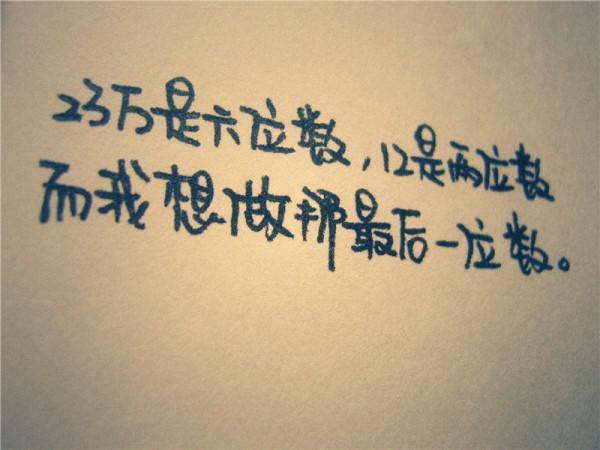 23万是六位数，12是两位数
而我想做那最后一位数。